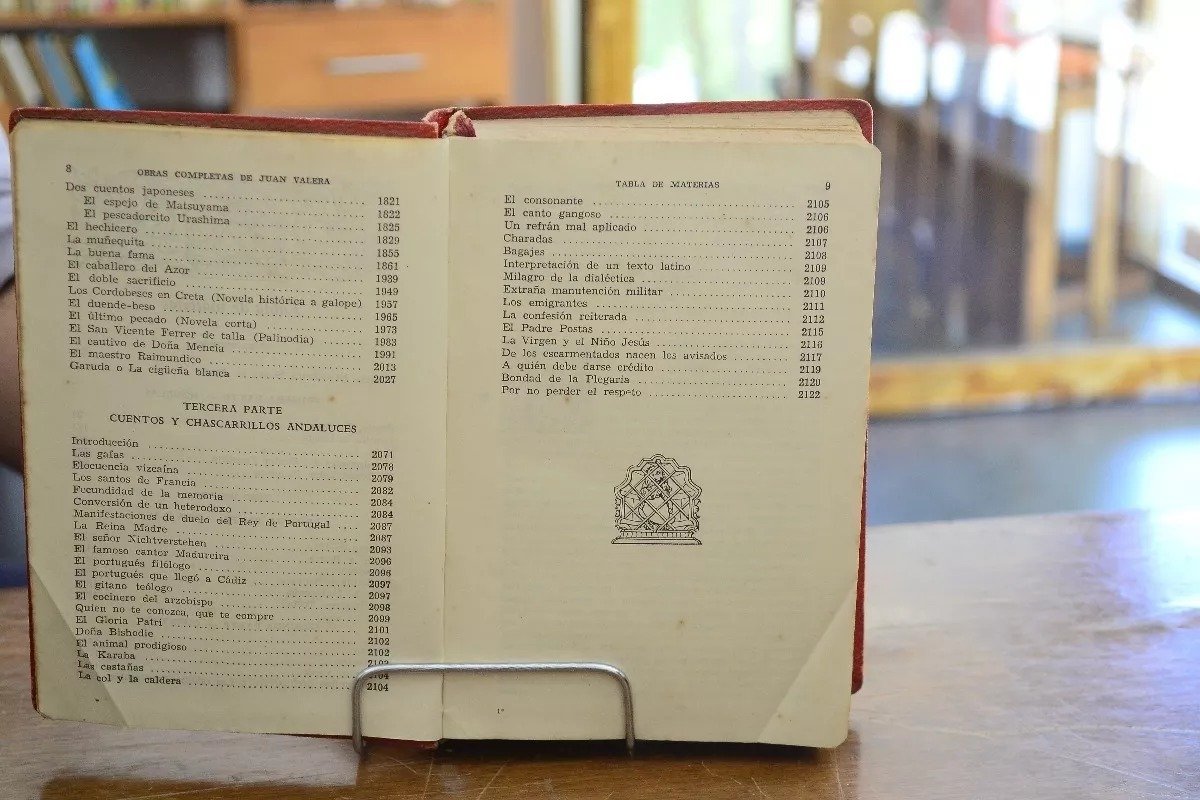 8 OBRAS COMPLETAS DE JUAN VALERA
Dos cuentos japoneses ........ 1821
El espejo de Matsuyama ........ 1822
El pescadorcito Urashima ........ 1825
El hechicero ........ 1829
La muñequita ........ 1855
La buena fama ........ 1861
El caballero del Azor ........ 1939
El doble sacrificio ........ 1949
Los Cordobeses en Creta (Novela histórica a galope) 1957
El duende-beso ........ 1965
El último pecado (Novela corta) ........ 1973
El San Vicente Ferrer de talla (Palinodia) ........ 1983
El cautivo de Doña Mencía ........ 1991
El maestro Raimundico ........ 2013
Garuda o La cigüeña blanca ........ 2027
TERCERA PARTE
CUENTOS Y CHASCARRILLOS ANDALUCES
Introducción ........ 2071
Las gafas ........ 2078
Elocuencia vizcaína ........ 2079
Los santos de Francia ........ 2082
Fecundidad de la memoria ........ 2084
Conversión de un heterodoxo ........ 2084
Manifestaciones de duelo del Rey de Portugal .... 2087
La Reina Madre ........ 2087
El señor Nichtverstehen ........ 2093
El famoso cantor Madureira ........ 2096
El portugués filólogo ........ 2096
El portugués que llegó a Cádiz ........ 2097
El gitano teólogo ........ 2097
El cocinero del arzobispo ........ 2098
Quien no te conozca, que te compre ........ 2099
El Gloria Patri ........ 2101
Doña Bishodie ........ 2102
El animal prodigioso ........ 2102
La Karaba ........ 2103
Las castañas ........ 2104
La col y la caldera ........ 2104
TABLA DE MATERIAS 9
El consonante ........ 2105
El canto gangoso ........ 2106
Un refrán mal aplicado ........ 2106
Charadas ........ 2107
Bagajes ........ 2108
Interpretación de un texto latino ........ 2109
Milagro de la dialéctica ........ 2109
Extraña manutención militar ........ 2110
Los emigrantes ........ 2111
La confesión reiterada ........ 2112
El Padre Postas ........ 2115
La Virgen y el Niño Jesús ........ 2116
De los escarmentados nacen los avisados ........ 2117
A quién debe darse crédito ........ 2119
Bondad de la Plegaria ........ 2120
Por no perder el respeto ........ 2122
1*